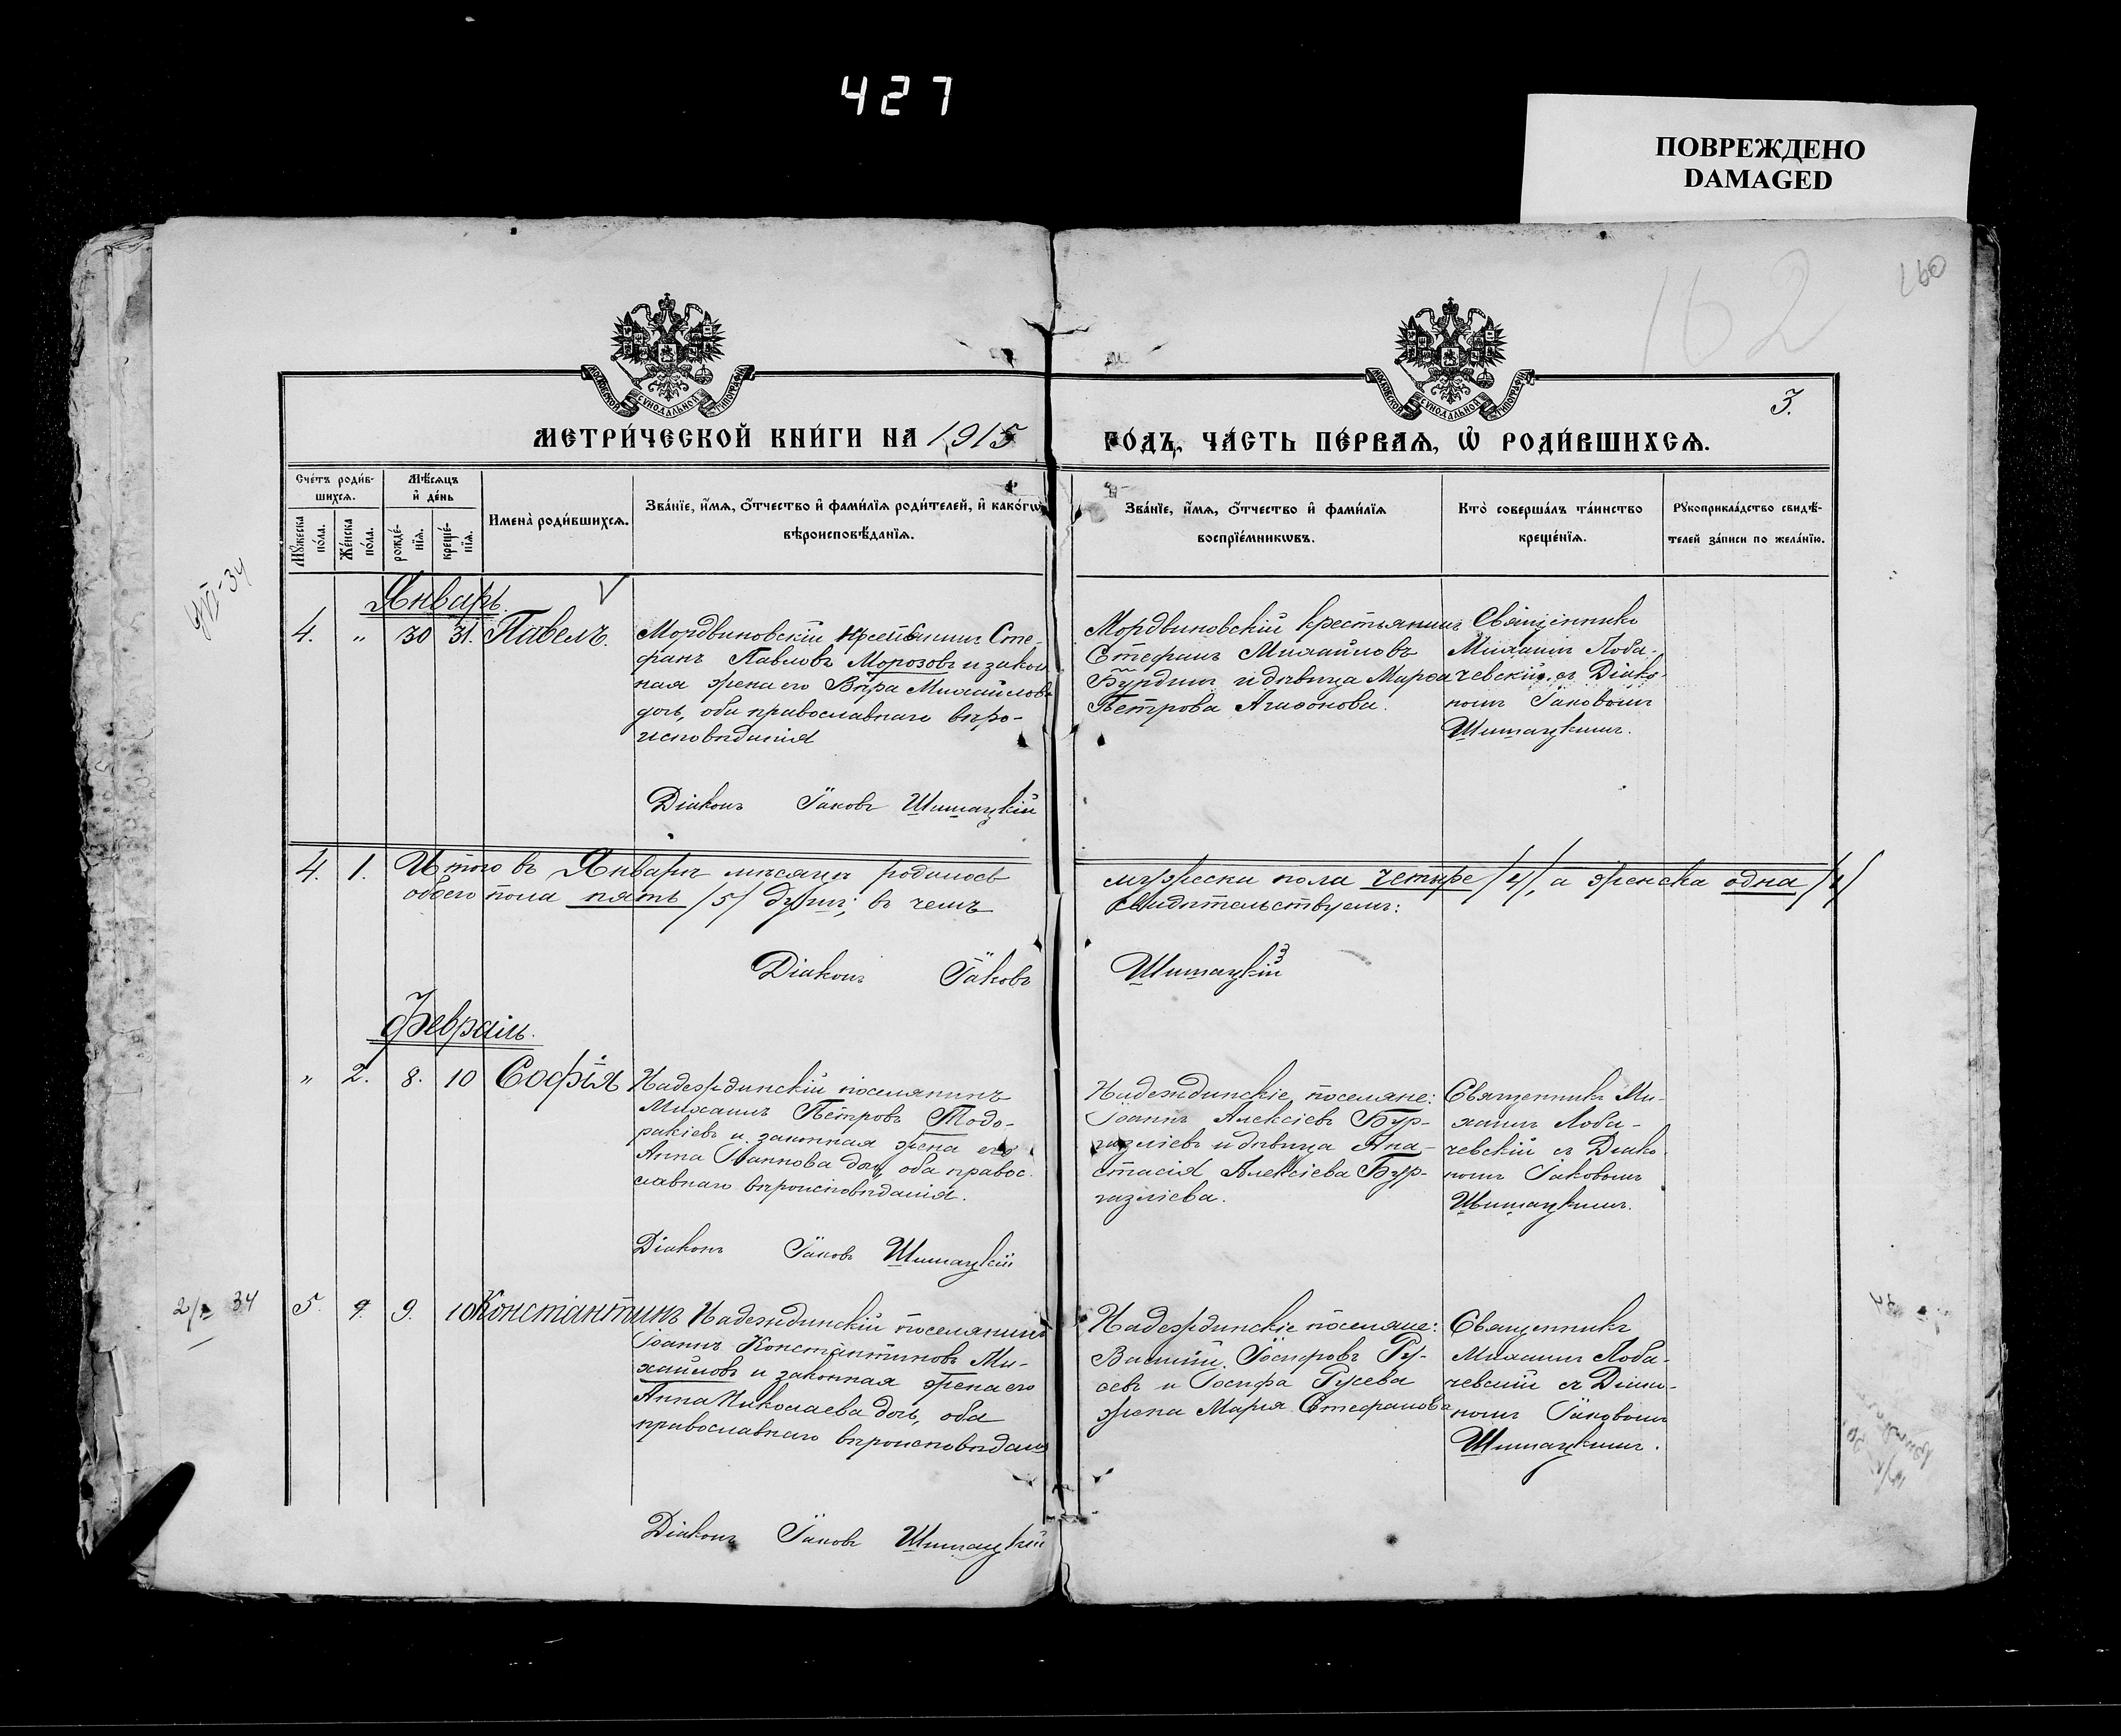 427
ПОВРЕЖДЕНО
DAMAGED
162
160
3.
МОСКОВСКОЙ СѴНОДАЛЬНОЙ ТИПОГРАФІИ
МОСКОВСКОЙ СѴНОДАЛЬНОЙ ТИПОГРАФІИ
МЕТРИ́ЧЕСКОЙ КНИ́ГИ НА 1915 ГО́ДЪ, ЧА́СТЬ ПЕ́РВАѦ, Ѡ҆ РОДИ́ВШИХСѦ.
Сче́тъ роди́в-
шихсѧ.
Мѹ́жеска по́ла.
Же́нска по́ла.
Мѣ́сѧцъ
и҆ де́нь
рожде́-
нїѧ.
креще́-
нїѧ.
Имена̀ роди́вшихсѧ.
Зва́нїе, и҆́мѧ, ѻ҆́тчество и҆ фами́лїѧ роди́телей, и҆ како́гѡ
вѣроисповѣ́данїѧ.
Зва́нїе, и҆́мѧ, ѻ҆́тчество и҆ фами́лїѧ
воспрїе́мникѡвъ.
Кто̀ соверша́лъ та́инство
креще́нїѧ.
Рѹкоприкла́дство свидѣ́-
телей за́писи по жела́нїю.
Январь.
4. " 30 31. Павелъ.
Мордвиновскій крестьянинъ Сте-
фанъ Павловъ Морозовъ и закон
ная жена его Вѣра Михайлова
дочь, оба православнаго вѣро-
исповѣданія
Діаконъ Іаковъ Шишацкій
Мордвиновскій крестьянинъ
Стефанъ Михайловъ
Бурдинъ и дѣвица Марѳа
Петрова Агаѳонова.
Священникъ
Михаилъ Лоба-
чевскій съ Діако-
номъ Іаковомъ
Шишацкимъ.
4. 1. Итого въ Январѣ мѣсяцѣ родилось мужеска пола четыре /4/, а женска одна /1/
обоего пола пять /5/ душъ; въ чемъ свидѣтельствуемъ:
Діаконъ Іаковъ Шишацкій
Февраль.
" 2. 8. 10 Софія
Надеждинскій поселянинъ
Михаилъ Петровъ Тодо-
ракіевъ и законная жена его
Анна Іоаннова дочь оба правос-
славнаго вѣроисповѣданія.
Діаконъ Іаковъ Шишацкій
Надеждинскіе поселяне:
Іоаннъ Алексіевъ Бур-
газліевъ и дѣвица Ана-
стасія Алексіева Бур-
газліева.
Священникъ Ми-
хаилъ Лоба-
чевскій съ Діако-
номъ Іаковомъ
Шишацкимъ.
34
5. 9. 10 Константинъ
Надеждинскій поселянинъ
Іоаннъ Константиновъ Ми-
хайловъ и законная жена его
Анна Николаева дочь, оба
православнаго вѣроисповѣданія
Діаконъ Іаковъ Шишацкій
Надеждинскіе поселяне:
Василій Іосифовъ Гу-
севъ и Іосифа Гусева
жена Марія Стефанова
Священникъ
Михаилъ Лоба-
чевскій съ Діако-
номъ Іаковомъ
Шишацкимъ.